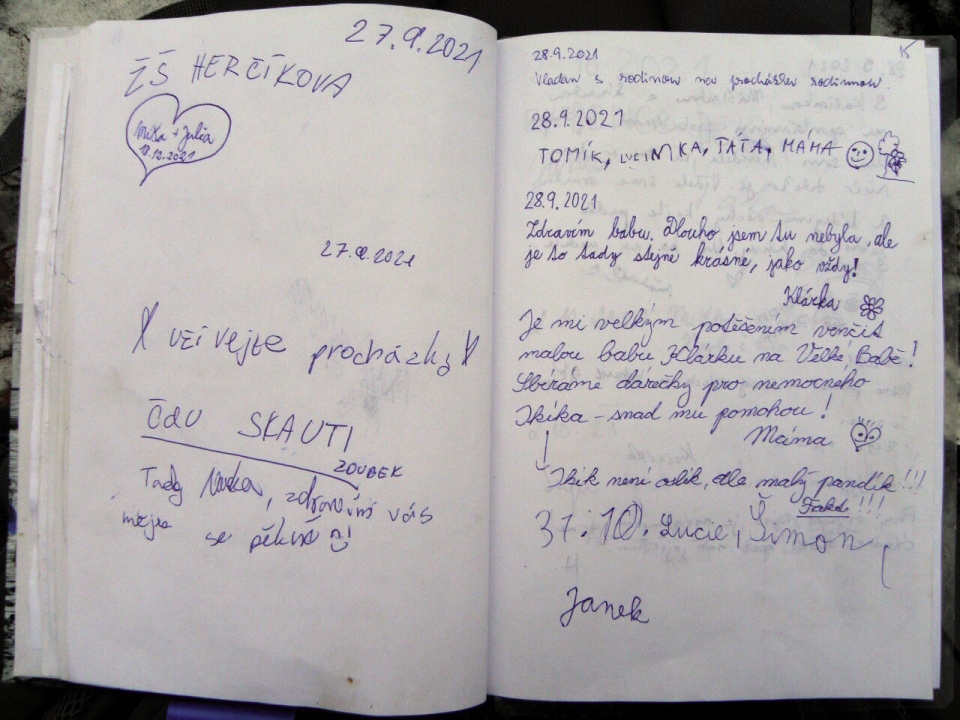 27.9.2021
ZŠ HERČÍKOVA
Miška + Julia
18.12.2021
27.9.2021
! užívejte procházky !
ČDU SKAUTI
ZOUBEK
Tady, zdravím vás
mějte se pěkně !
15
28.9.2021
Vladan s rodinou na procházku rodinnou.
28.9.2021
TOMÍK, LUCINKA, TÁTA, MÁMA
28.9.2021
Zdravím babu. Dlouho jsem tu nebyla, ale
je to tady stejně krásné, jako vždy!
Klárka
Je mi velkým potěšením venčit
malou babu Klárku na Velké Babě!
Sbíráme dárečky pro nemocného
Ikíka – snad mu pomohou!
Máma
Ikík není oslík, ale malý pandík!!!
Fakt!!!
31.10. Lucie, Šimon,
Janek